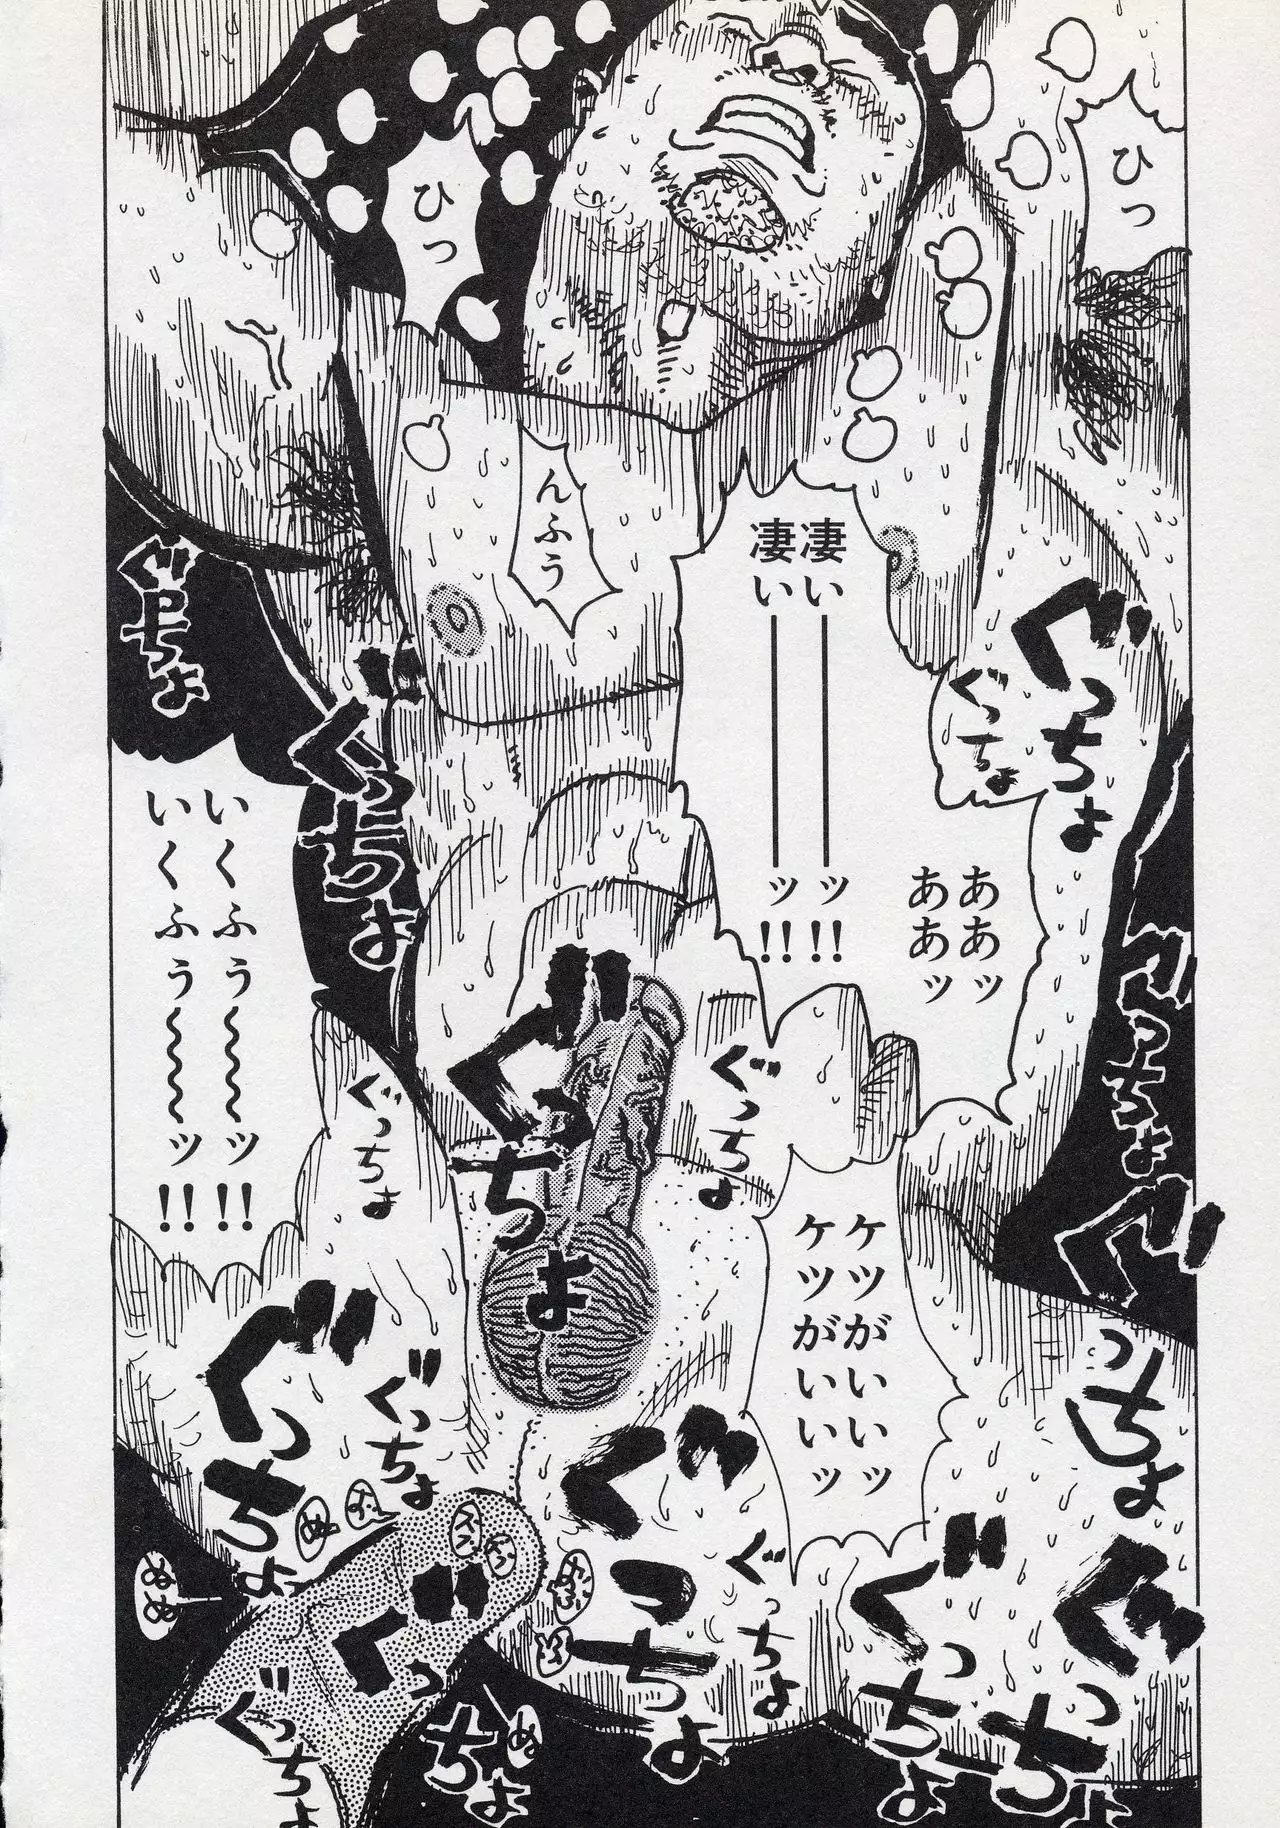 ひっ
ひっ
んふう
凄い━━━━ッ!!
凄い━━━━ッ!!
ああッ
ああッ
ぐっちょ
ぐっちょ
ぐっちょ
ぐっちょ
ぐっちょ
いくふぅ～～～ッ!!
いくふぅ～～～ッ!!
ぐっちょ
ぐっちょ
ぐっちょ
ケツがいいッ
ケツがいいッ
ぐっちょ
ぐっちょ
ぐっちょ
ぐっちょ
ぐっちょ
ぐっちょ
ぐっちょ
ぐっちょ
ぐっちょ
ぬぬ
ぬ